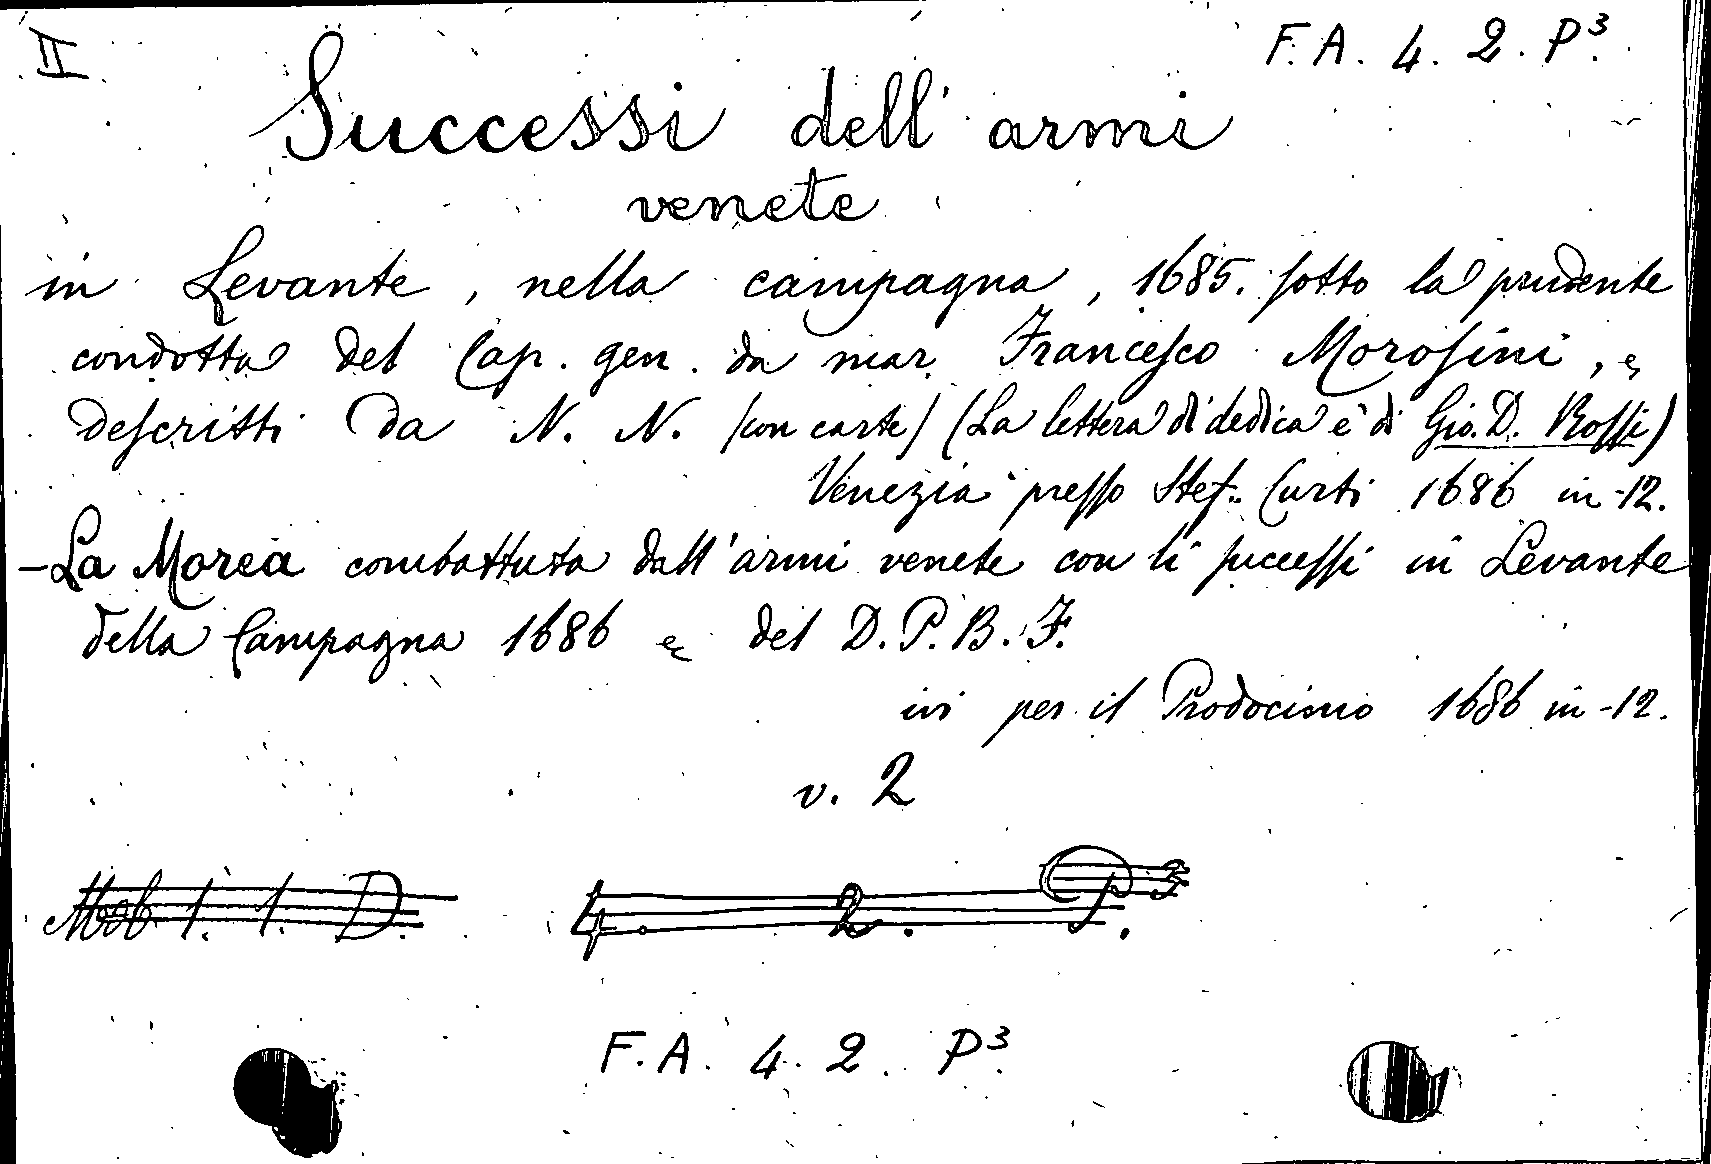 II
F. A. 4. 2. P³.
Successi dell' armi
venete
in Levante, nella campagna, 1685. sotto la prudente
condotta del Cap. gen. da mar Francesco Morosini, e
descritti da N. N. (con carte) (La lettera di dedica è di Gio. D. Rossi)
Venezia presso Stef. Curti 1686 in-12.
- La Morea combattuta dall'armi venete con li successi in Levante
della Campagna 1686 e del D. P. B. F.
ivi per il Prodocimo 1686 in-12.
v. 2
Mob. 1. 1. D. 4. 2. P. 3
F. A. 4. 2. P³.